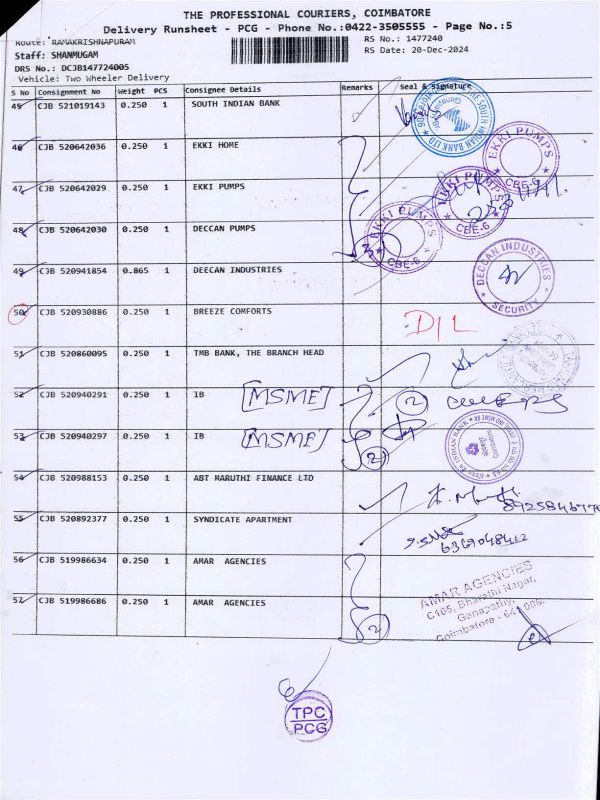 THE PROFESSIONAL COURIERS, COIMBATORE
Delivery Runsheet - PCG - Phone No.:0422-3505555 - Page No.:5
Route: RAMAKRISHNAPURAM RS No.: 1477240
Staff: SHANMUGAM RS Date: 20-Dec-2024
DRS No.: DCJB147724005
Vehicle: Two Wheeler Delivery
S No Consignment No Weight PCS Consignee Details Remarks Seal & Signature
45 CJB 521019143 0.250 1 SOUTH INDIAN BANK
46 CJB 520642036 0.250 1 EKKI HOME
EKKI PUMPS CBE-6
47 CJB 520642029 0.250 1 EKKI PUMPS
EKKI PUMPS CBE-6
48 CJB 520642030 0.250 1 DECCAN PUMPS
3 EKKI PUMPS CBE-6
49 CJB 520941854 0.865 1 DEECAN INDUSTRIES
DECCAN INDUSTRIES SECURITY
50 CJB 520930886 0.250 1 BREEZE COMFORTS D/L
51 CJB 520860095 0.250 1 TMB BANK, THE BRANCH HEAD
52 CJB 520940291 0.250 1 IB [MSME] 2
53 CJB 520940297 0.250 1 IB [MSME] 2
INDIAN BANK
54 CJB 520988153 0.250 1 ABT MARUTHI FINANCE LTD
55 CJB 520892377 0.250 1 SYNDICATE APARTMENT
6369048412
56 CJB 519986634 0.250 1 AMAR AGENCIES
57 CJB 519986686 0.250 1 AMAR AGENCIES 2
AMAR AGENCIES
C105, Bharathi Nagar,
Ganapathy,
Coimbatore - 641 006.
TPC
PCG